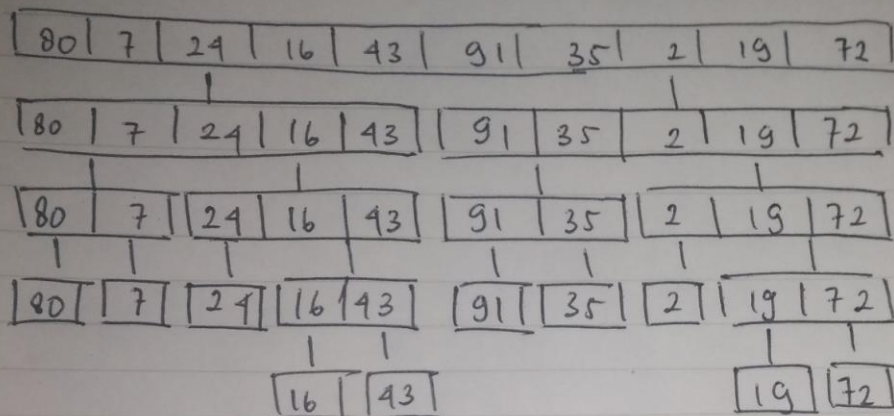 80 7 24 16 43 91 35 2 19 72
80 7 24 16 43 91 35 2 19 72
80 7 24 16 43 91 35 2 19 72
80 7 24 16 43 91 35 2 19 72
16 43 19 72